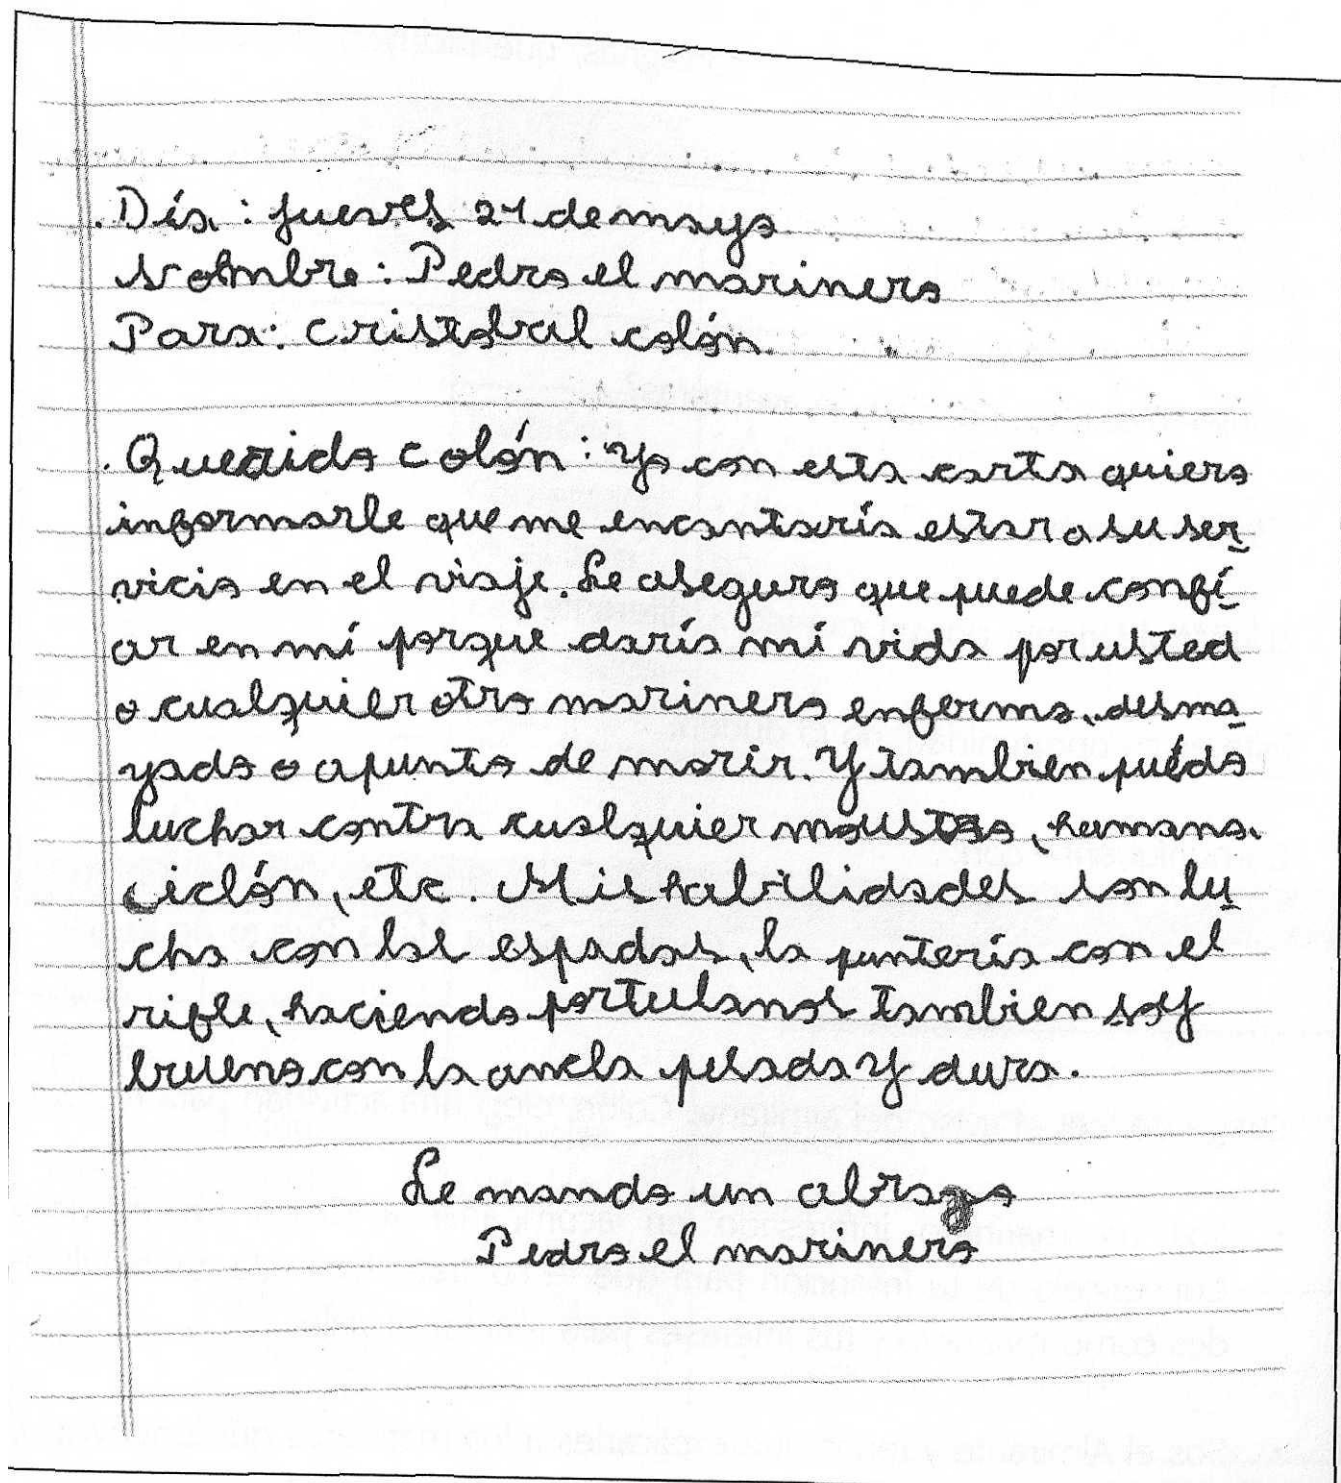 Día: jueves 21 de mayo
Nombre: Pedro el marinero
Para: Cristobal colón.
Querido Colón: Yo con esta carta quiero
informarle que me encantaría estar a su ser
vicio en el viaje. Le aseguro que puede confi
ar en mí porque daría mi vida por usted
o cualquier otro marinero enfermo, desma
yado o a punto de morir. Y tambien puedo
luchar contra cualquier moustro, humano,
ciclón, etc. Mis habilidades son lu
cha con las espadas, la puntería con el
rifle, haciendo portulanos tambien soy
bueno con la ancla pesada y dura.
Le mando un abrazo
Pedro el marinero